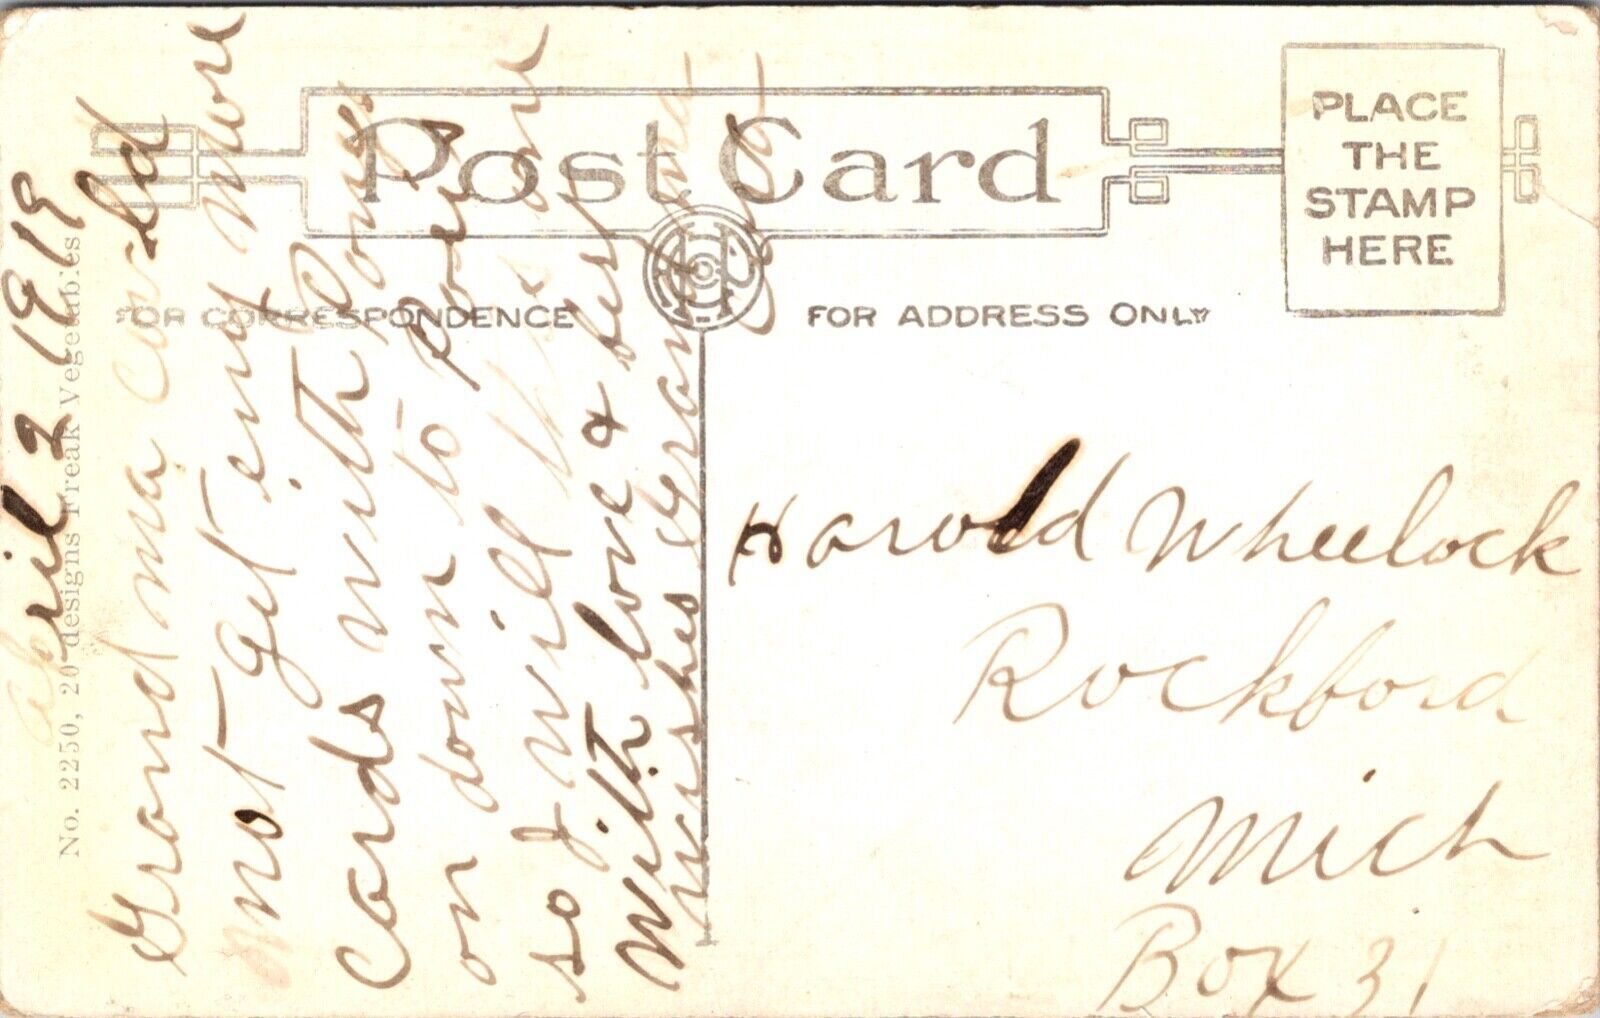 Post Card
PLACE
THE
STAMP
HERE
FOR CORRESPONDENCE
FOR ADDRESS ONLY
No. 2250, 20 designs Freak Vegetables
april 2 1919
Grandma Could
not get eny more
Cards with Pongs
on down to Poeys
so I will this one
With love & best
wishes Grandma
Harold Wheelock
Rockford
Mich
Box 31